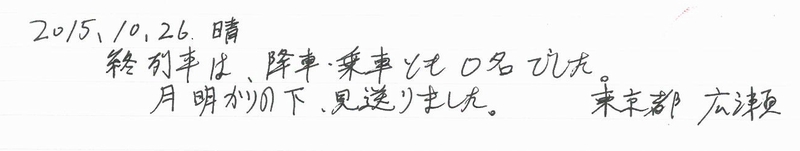 2015.10.26. 晴
終列車は、降車・乗車とも0名でした。
月明かりの下、見送りました。 東京都 広瀬